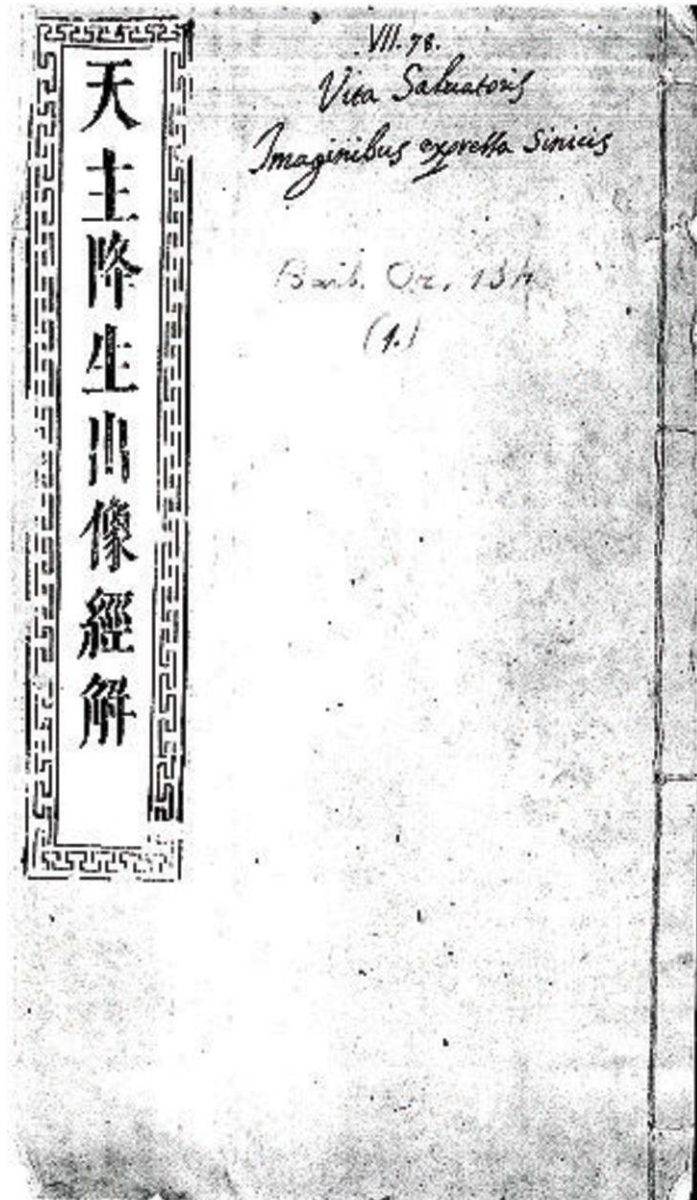 天主降生出像經解
VII. 78.
Vita Saluatoris
Imaginibus expressa Sinicis
Barb. Or. 134
(1.)